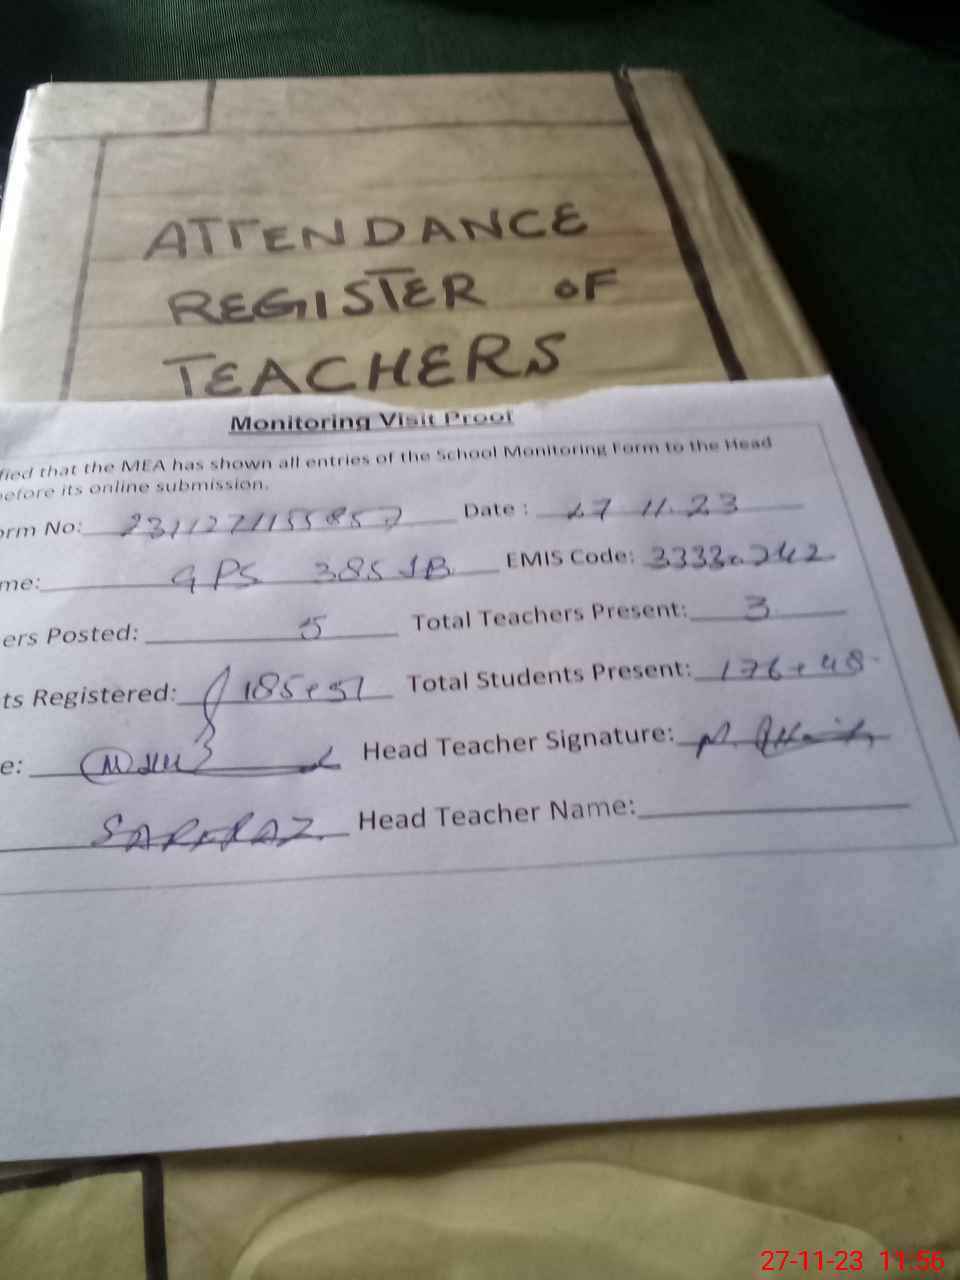 ATTENDANCE
REGISTER OF
TEACHERS
Monitoring Visit Proof
fied that the MEA has shown all entries of the School Monitoring Form to the Head
before its online submission.
orm No: Date : 27 11.23
me: GPS 385 JB EMIS Code:
ers Posted: 5 Total Teachers Present: 3
ts Registered: 185+51 Total Students Present: 176+48
e: Head Teacher Signature:
SARFRAZ Head Teacher Name:
27-11-23 11:56